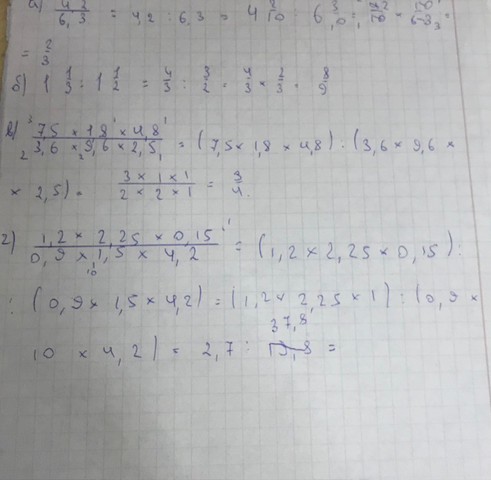 а) 4,2/6,3 = 4,2 : 6,3 = 4 2/10 : 6 3/10 =
= 2/3
б) 1 1/3 : 1 1/2 = 4/3 : 3/2 = 4/3 × 2/3 = 8/9
в) 7,5 × 1,8 × 4,8 / 3,6 × 9,6 × 2,5 = (7,5 × 1,8 × 4,8) : (3,6 × 9,6 ×
× 2,5) = 3 × 1 × 1 / 2 × 2 × 1 = 3/4
г) 1,2 × 2,25 × 0,15 / 0,9 × 1,5 × 4,2 = (1,2 × 2,25 × 0,15) :
: (0,9 × 1,5 × 4,2) = (1,2 × 2,25 × 1) : (0,9 ×
37,8
10 × 4,2) = 2,7 : =